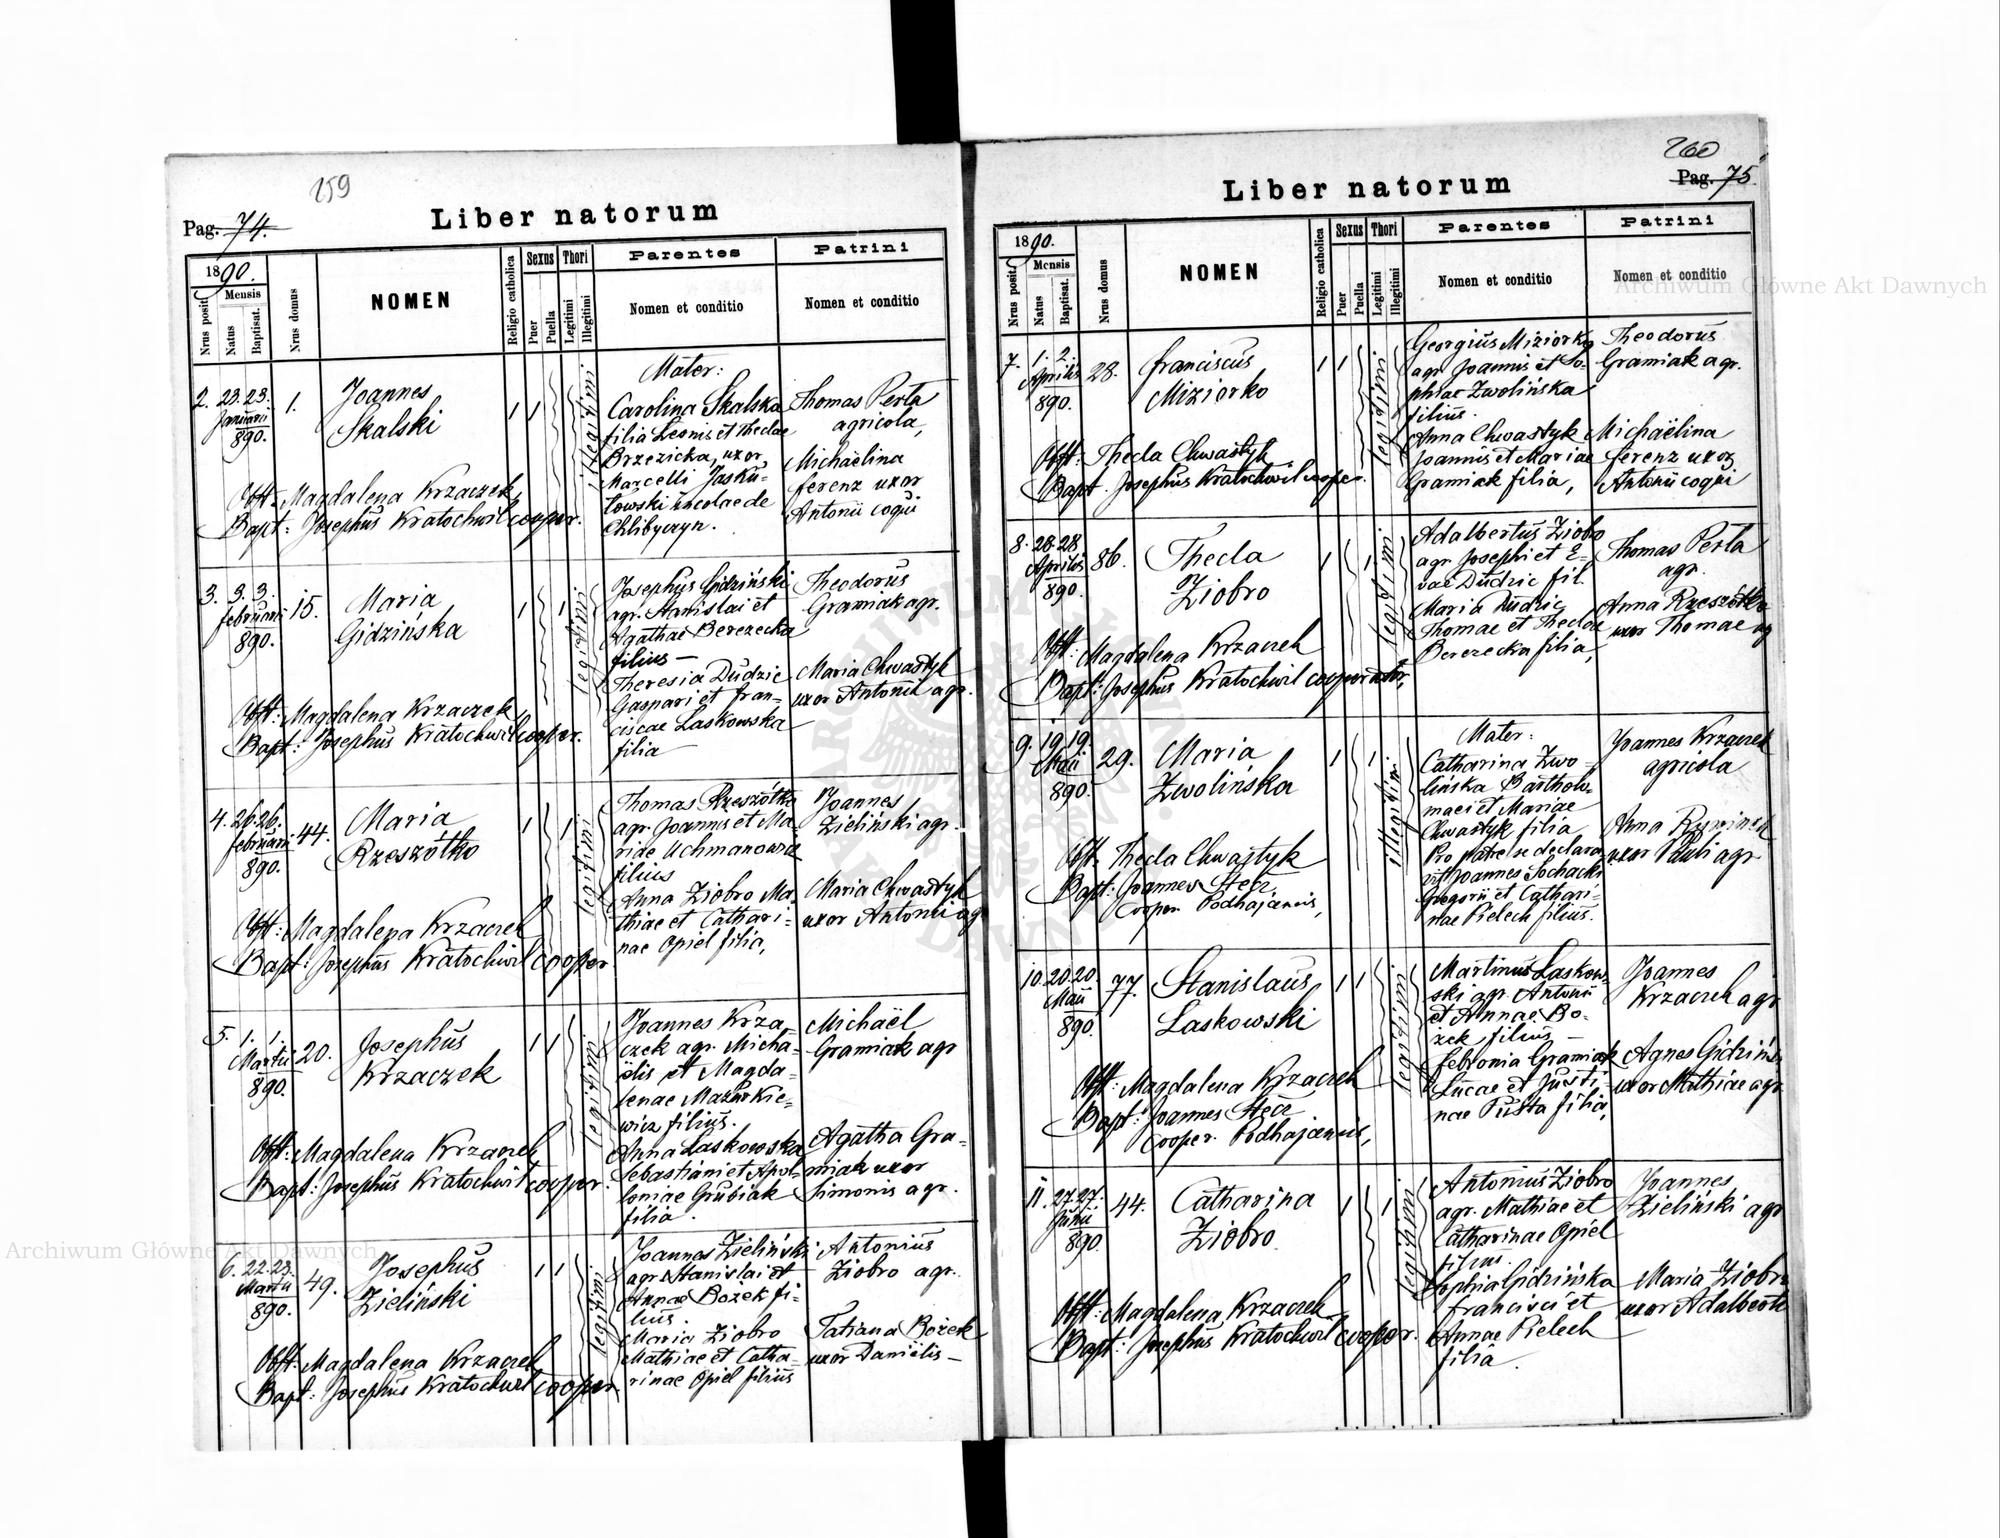 259
Pag. 74.
Liber natorum
1890.
Nrus posit.
Mensis
Natus
Baptisat.
Nrus domus
NOMEN
Religio catholica
Sexus
Puer
Puella
Thori
Legitimi
Illegitimi
Parentes
Nomen et conditio
Patrini
Nomen et conditio
2. 23. 23.
Januarii
890.
1.
Joannes
Skalski
1 1
illegitimi
Mater:
Carolina Skalska
filia Leonis et Theclae
Brzezicka, uxor
Marcelli Jasku-
towski incolae de
Chlibyczyn.
Thomas Perta
agricola,
Michaëlina
ferenz uxor
Antonii coqui
Obst: Magdalena Krzaczek,
Bapt: Josephus Kratochwil cooper.
3. 3. 3.
februarii
890.
15.
Maria
Gidzińska
1 1
legitimi
Josephus Gidziński
agr. Stanislai et
Agathae Berezecka
filius —
Theresia Dudzic
Gaspari et fran-
ciscae Laskowska
filia
Theodorus
Gramiak agr.
Maria Chwastyk
uxor Antonii agr.
Obst: Magdalena Krzaczek,
Bapt: Josephus Kratochwil cooper.
4. 26. 26.
februarii
890.
44.
Maria
Rzeszótko
1 1
legitimi
Thomas Rzeszótko
agr. Joannis et Ma-
riae Uchmanowicz
filius
Anna Ziobro Ma-
thiae et Cathari-
nae Opiel filia,
Joannes
Zieliński agr.
Maria Chwastyk
uxor Antonii agr
Obst: Magdalena Krzaczek
Bapt: Josephus Kratochwil cooper.
5. 1. 1.
Martii
890.
20.
Josephus
Krzaczek
1 1
legitimi
Joannes Krza-
czek agr. Micha-
ëlis et Magda-
lenae Mazurkie-
wicz filius.
Anna Laskowska
Sebastiani et Apol-
loniae Grubiak
filia.
Michaël
Gramiak agr
Agatha Gra-
miak uxor
Simonis agr.
Obst: Magdalena Krzaczek
Bapt: Josephus Kratochwil cooper.
6. 22. 23.
Martii
890.
49.
Josephus
Zieliński
1 1
legitimi
Joannes Zieliński
agr. Stanislai et
Annae Bożek fi-
lius.
Maria Ziobro
Mathiae et Catha-
rinae Opiel filius
Antonius
Ziobro agr.
Tatiana Bożek
uxor Daniëlis —
Obst: Magdalena Krzaczek
Bapt: Josephus Kratochwil cooper.
260
Pag. 75.
Liber natorum
1890.
Nrus posit.
Mensis
Natus
Baptisat.
Nrus domus
NOMEN
Religio catholica
Sexus
Puer
Puella
Thori
Legitimi
Illegitimi
Parentes
Nomen et conditio
Patrini
Nomen et conditio
7. 1. 2.
Aprilis
890.
28.
franciscus
Miziorko
1 1
legitimi
Georgius Miziorko
agr. Joannis et So-
phiae Zwolińska
filius.
Anna Chwastyk
Joannis et Mariae
Gramiak filia,
Theodorus
Gramiak agr.
Michaëlina
ferenz uxor
Antonii coqui
Obst: Thecla Chwastyk
Bapt: Josephus Kratochwil cooper.
8. 28. 28
Aprilis
890.
86.
Thecla
Ziobro
1 1
legitimi
Adalbertus Ziobro
agr. Josephi et E-
vae Dudzic fil.
Maria Dudzic
Thomae et Theclae
Berezecka filia,
Thomas Perta
agr.
Anna Rzeszótko
uxor Thomae ag
Obst: Magdalena Krzaczek
Bapt: Josephus Kratochwil cooperator,
9. 19. 19.
Maii
890.
29.
Maria
Zwolińska
1 1
illegitimi
Mater:
Catharina Zwo-
lińska Bartholo-
maei et Mariae
Chwastyk filia
Pro patre se declara-
vit Joannes Sochacki
Gregorii et Cathari-
nae Pielech filius.
Joannes Krzaczek
agricola
Anna
uxor Pauli agr
Obst: Thecla Chwastyk
Bapt: Joannes Stecz
cooper. Podhajcensis,
10. 20. 20.
Maii
890.
77.
Stanislaus
Laskowski
1 1
legitimi
Martinus Laskow-
ski agr. Antonii
et Annae Bo-
żek filius —
Febronia Gramiak
Lucae et Justi-
nae Pusta filia,
Joannes
Krzaczek agr
Agnes Gidzińs
uxor Mathiae agr.
Obst: Magdalena Krzaczek
Bapt: Joannes Stecz
cooper. Podhajcensis,
11. 27. 27.
Junii
890.
44.
Catharina
Ziobro
1 1
legitimi
Antonius Ziobro
agr. Mathiae et
Catharinae Opiel
filius.
Sophia Gidzińska
francisci et
Annae Pielech
filia.
Joannes
Zieliński agr
Maria Ziobro
uxor Adalberti
Obst: Magdalena Krzaczek
Bapt: Josephus Kratochwil cooper.
Archiwum Główne Akt Dawnych
Archiwum Główne Akt Dawnych